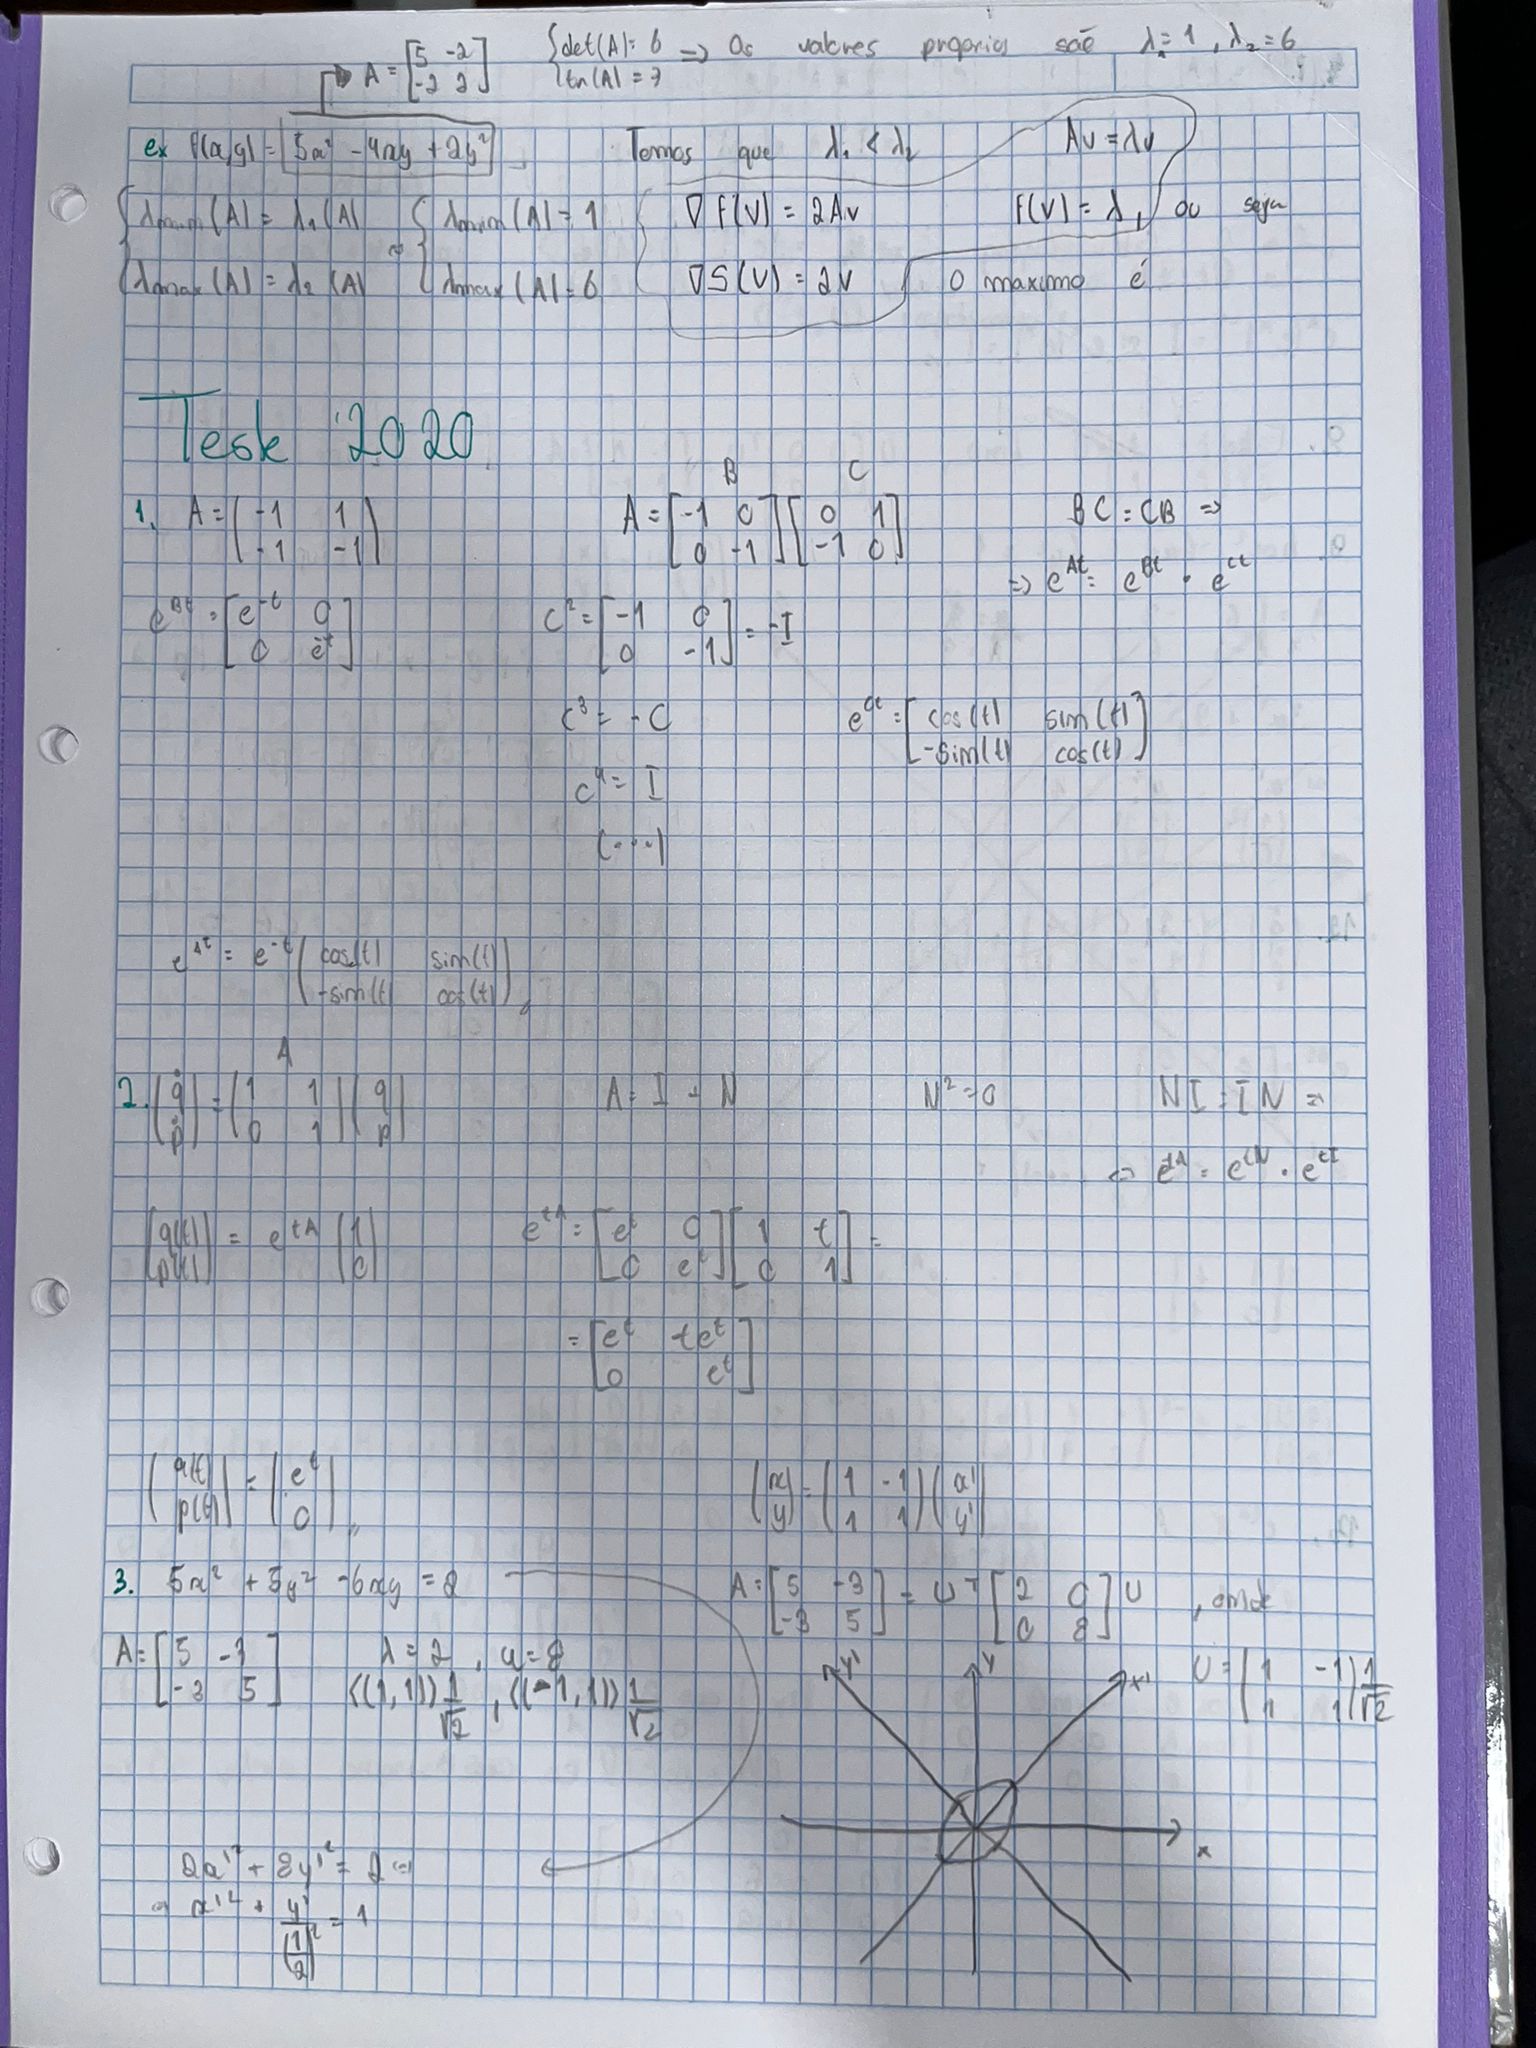 A = [5 -2; -2 2] {det(A) = 6 tr(A) = 7 => Os valores proprios são λ₁=1, λ₂=6
ex f(x,y) = 5x² - 4xy + 2y² Temos que λ₁ < λ₂ Av = λv
{λmin(A) = λ₁(A) {λmin(A) = 1 ∇f(v) = 2Av f(v) = λ, ou seja
{λmax(A) = λ₂(A) {λmax(A) = 6 ∇S(v) = 2v o maximo é
Teste 2020
1. A = (-1 1; -1 -1) A = [-1 0; 0 -1][0 1; -1 0] B C BC = CB =>
=> e^{At} = e^{Bt} · e^{Ct}
e^{Bt} = [e^{-t} 0; 0 e^{-t}] C² = [-1 0; 0 -1] = -I
C³ = -C e^{Ct} = [cos(t) sim(t); -sim(t) cos(t)]
C⁴ = I
(...)
e^{At} = e^{-t} (cos(t) sim(t); -sim(t) cos(t))
A
2. (q̇; ṗ) = (1 1; 0 1)(q; p) A = I + N N² = 0 NI = IN =>
<=> e^{tA} = e^{tN} · e^{tI}
(q(t); p(t)) = e^{tA} (1; 0) e^{tA} = [e^t 0; 0 e^t][1 t; 0 1] =
= [e^t te^t; 0 e^t]
(q(t); p(t)) = (e^t; 0) (x; y) = (1 -1; 1 1)(x'; y')
3. 5x² + 5y² - 6xy = 2 A = [5 -3; -3 5] = U^T [2 0; 0 8] U, onde
A = [5 -3; -3 5] λ = 2, u = 8 U = (1 -1; 1 1) 1/√2
⟨(1,1)⟩ 1/√2, ⟨(-1,1)⟩ 1/√2
y' y x'
x
2x'² + 8y'² = 2 <=>
<=> x'² + y'/(1/2)² = 1